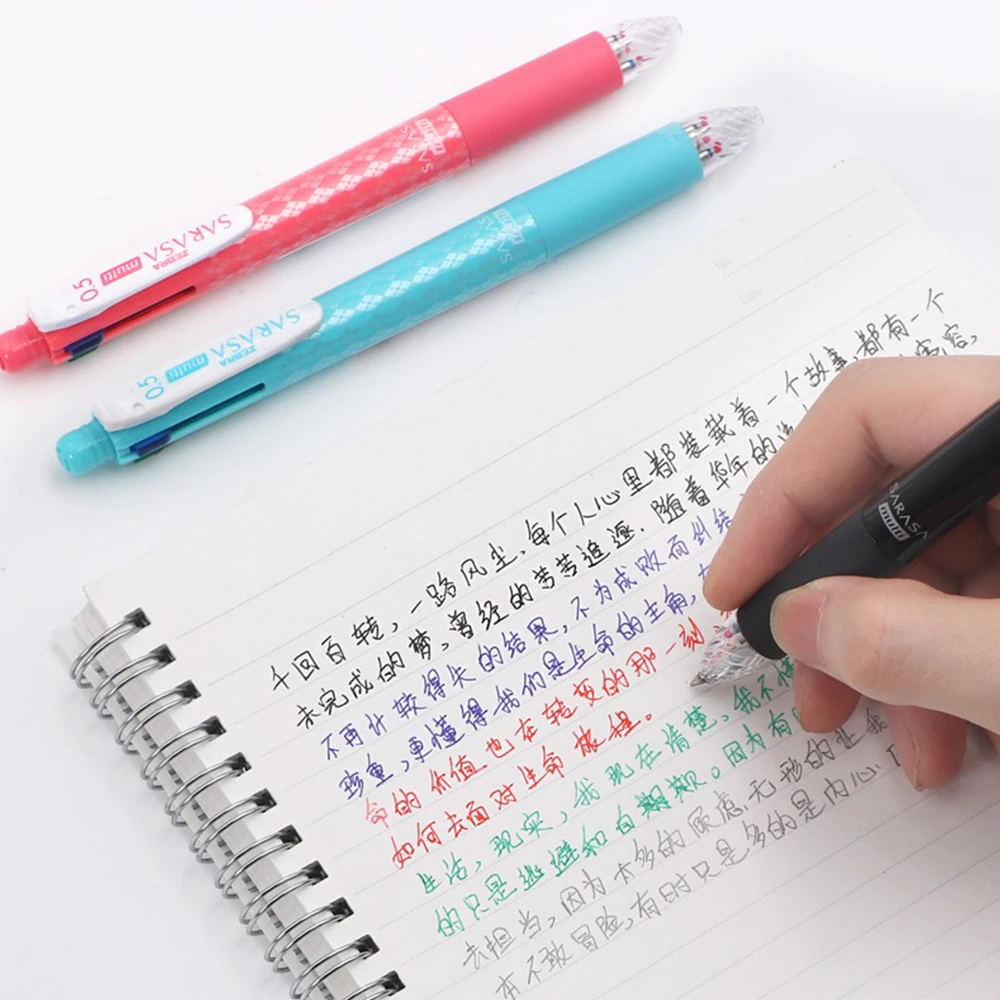 SARASA multi
ZEBRA
SARASA multi 0.5
SARASA multi
ZEBRA
SARASA multi 0.5
No.
Date
千回百转,一路风尘,每个人心里都装载着一个故事,都有一个
未完成的梦,曾经的苦苦追逐.随着华年的
不再计较得失的结果,不为成败而纠结
珍重,更懂得我们是生命的主角,
命的价值也在转变的那一刻
如何去面对生命旅程。
生活,现实,我现在清楚,我不
的只是逃避和自欺欺。因为有
去担当,因为太多的顾虑.无形的
本不敢冒险,有时只是多的是内心
SARASA
multi